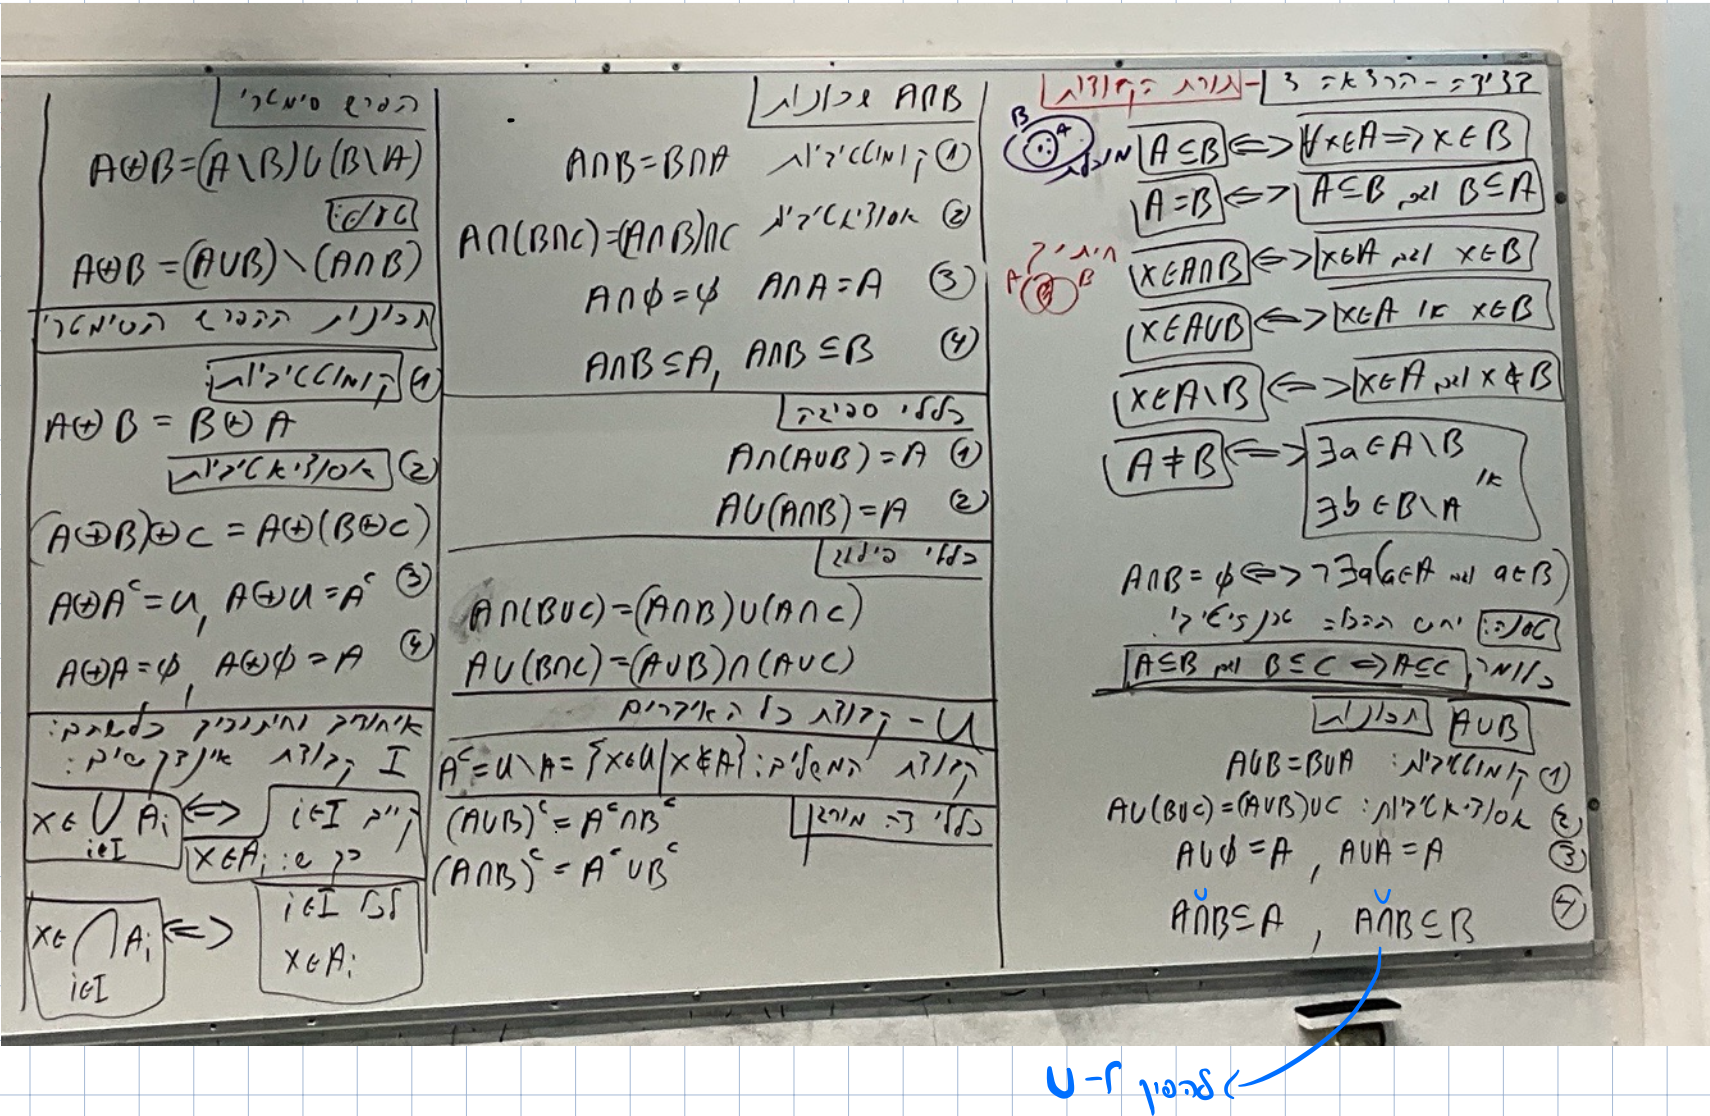 בדידה - הרצאה 3 - תורת הקבוצות
B A מוכלת A⊆B ⟺ ∀x∈A ⟹ x∈B
A=B ⟺ A⊆B וגם B⊆A
חיתוך
A B x∈A∩B ⟺ x∈A וגם x∈B
x∈A∪B ⟺ x∈A או x∈B
x∈A\B ⟺ x∈A וגם x∉B
A≠B ⟺ ∃a∈A\B
או
∃b∈B\A
A∩B=ϕ ⟺ ¬∃a(a∈A וגם a∈B)
טענה: יחס ההכלה טרנזיטיבי.
כלומר, A⊆B וגם B⊆C ⟹ A⊆C
A∪B תכונות
① קומוטטיביות: A∪B=B∪A
② אסוציאטיביות: A∪(B∪C)=(A∪B)∪C
③ A∪ϕ=A , A∪A=A
∪ ∪
④ A∩B⊆A , A∩B⊆B
להפוך ל-∪
A∩B תכונות
① קומוטטיביות A∩B=B∩A
② אסוציאטיביות A∩(B∩C)=(A∩B)∩C
③ A∩ϕ=ϕ A∩A=A
④ A∩B⊆A, A∩B⊆B
כללי ספיגה
① A∩(A∪B)=A
② A∪(A∩B)=A
כללי פילוג
A∩(B∪C)=(A∩B)∪(A∩C)
A∪(B∩C)=(A∪B)∩(A∪C)
U - קבוצת כל האיברים
קבוצת המשלים: A^c=U\A={x∈U|x∉A}
כללי דה מורגן
(A∪B)^c=A^c∩B^c
(A∩B)^c=A^c∪B^c
הפרש סימטרי
A⊕B=(A\B)∪(B\A)
A⊕B=(A∪B)\(A∩B)
תכונות ההפרש הסימטרי
① קומוטטיביות:
A⊕B=B⊕A
② אסוציאטיביות
(A⊕B)⊕C=A⊕(B⊕C)
③ A⊕A^c=U, A⊕U=A^c
④ A⊕A=ϕ, A⊕ϕ=A
איחודים וחיתוכים כלשהם:
I קבוצת אינדקסים:
x∈⋃A_i i∈I ⟺ קיים i∈I
כך ש: x∈A_i
x∈⋂A_i i∈I ⟺ לכל i∈I
x∈A_i